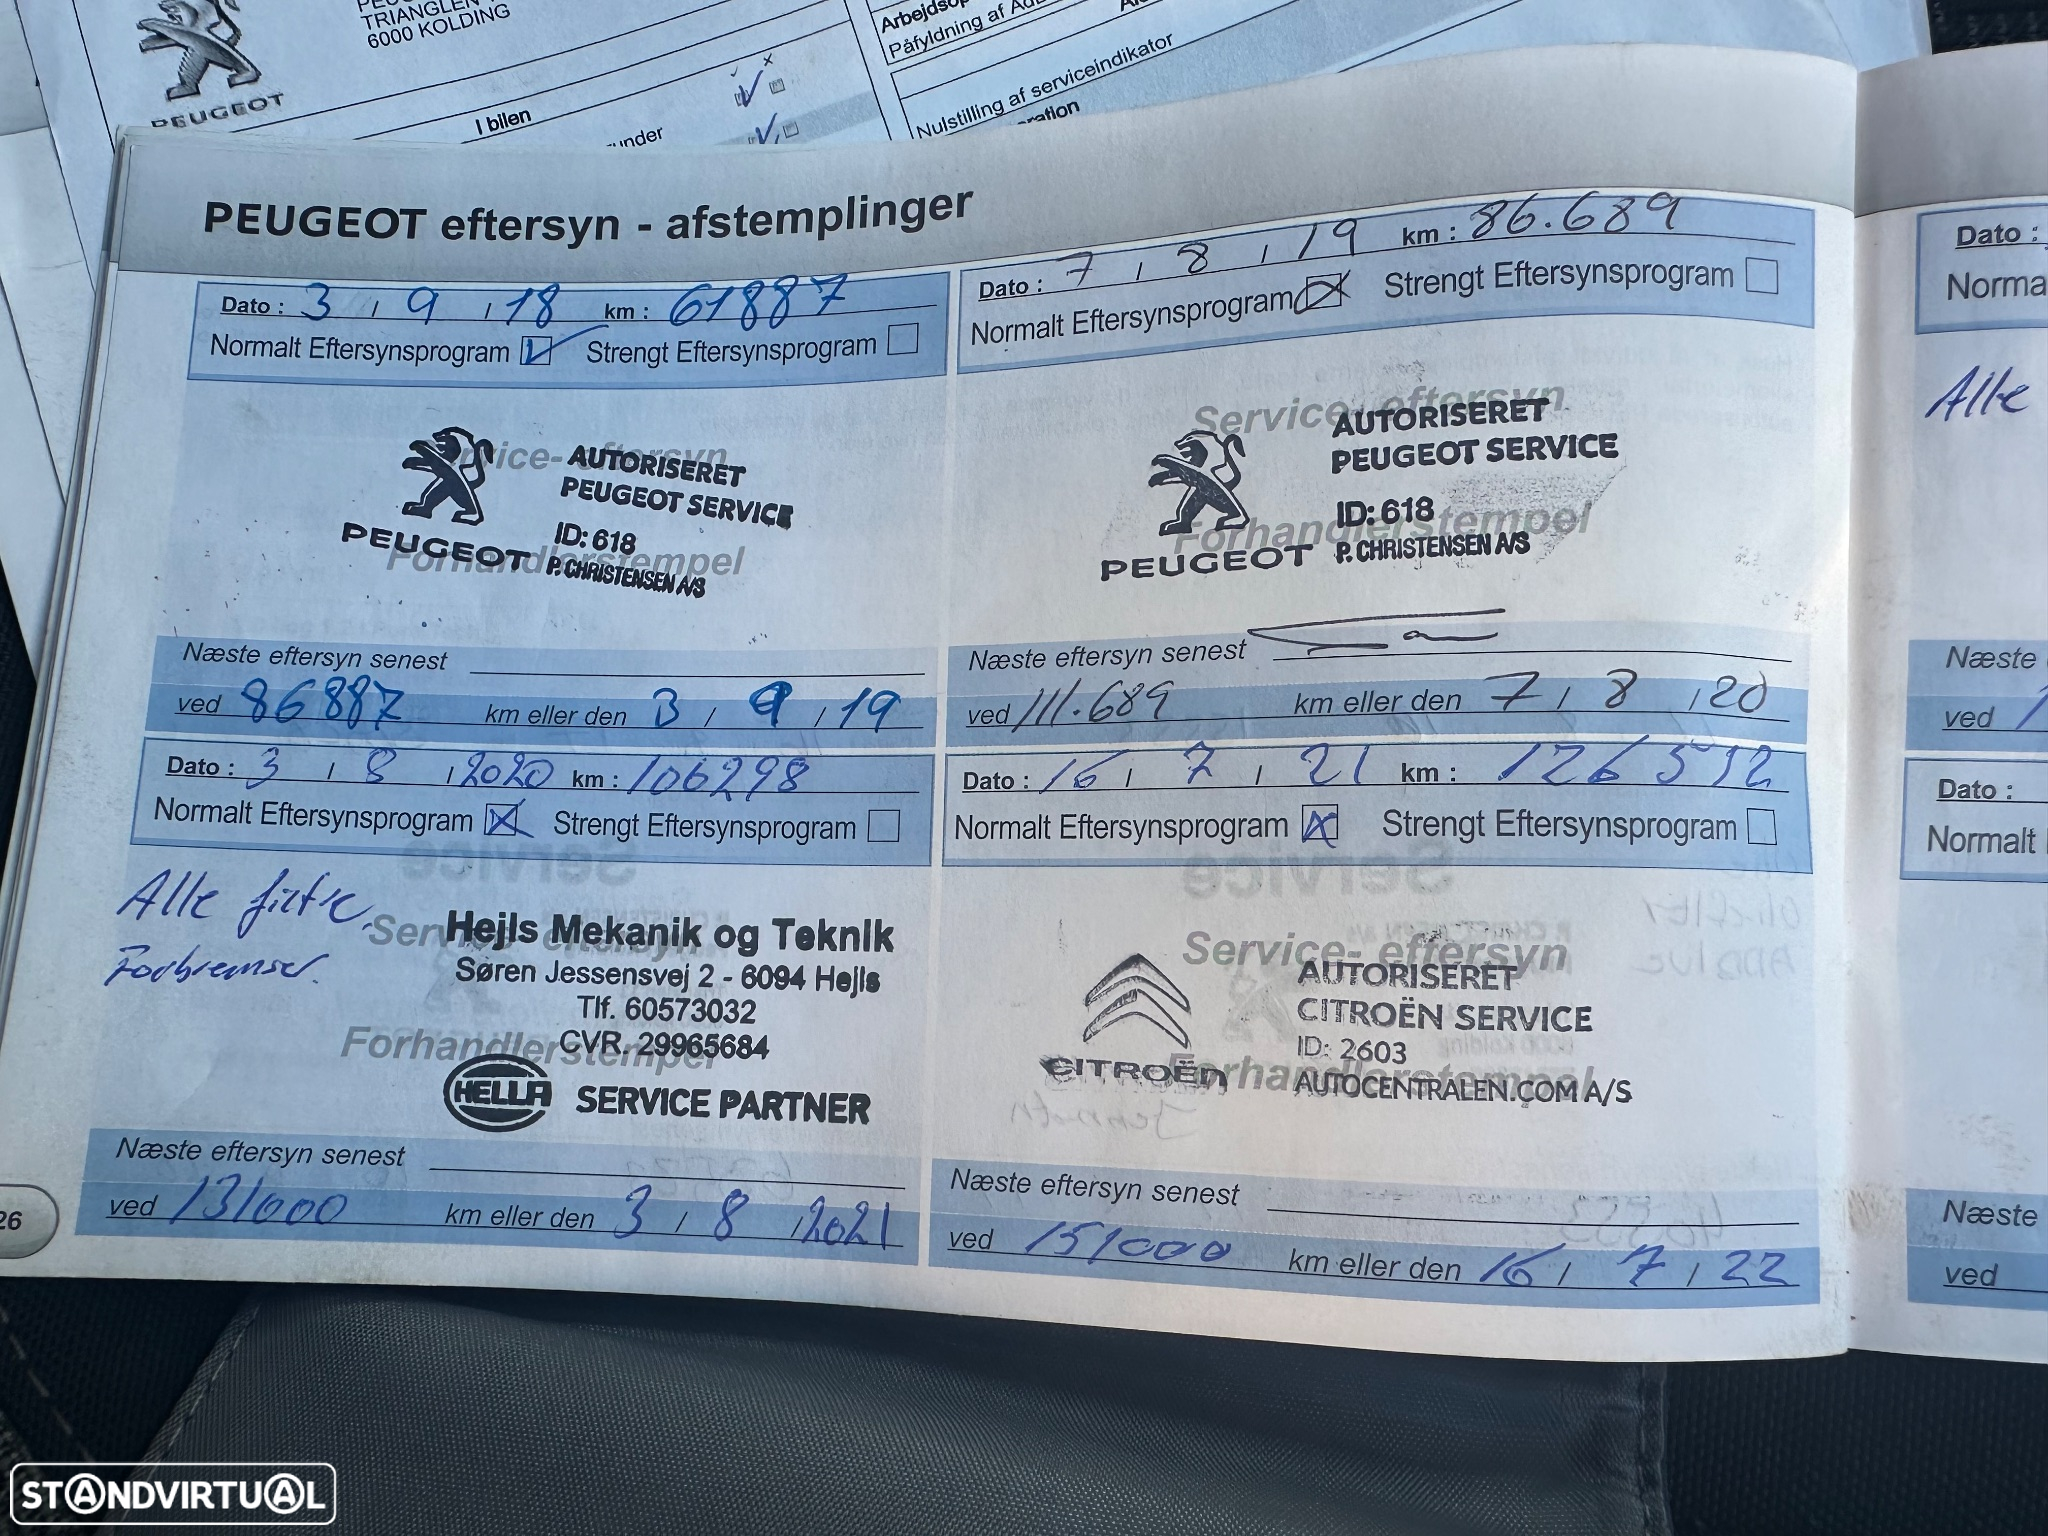 TRIANGLEN
6000 KOLDING
PEUGEOT
I bilen
Påfyldning af
Nulstilling af serviceindikator
PEUGEOT eftersyn - afstemplinger
Dato : 3 / 9 / 18 km : 61887
Normalt Eftersynsprogram Strengt Eftersynsprogram
Service- eftersyn
Forhandlerstempel
AUTORISERET
PEUGEOT SERVICE
ID: 618
P. CHRISTENSEN A/S
PEUGEOT
Næste eftersyn senest
ved 86887 km eller den 3 / 9 / 19
Dato : 7 / 8 / 19 km : 86.689
Normalt Eftersynsprogram Strengt Eftersynsprogram
Service- eftersyn
Forhandlerstempel
AUTORISERET
PEUGEOT SERVICE
ID: 618
P. CHRISTENSEN A/S
PEUGEOT
Næste eftersyn senest
ved 111.689 km eller den 7 / 8 / 20
Dato : 3 / 8 / 2020 km : 106298
Normalt Eftersynsprogram Strengt Eftersynsprogram
Alle filtre.
Forbremser.
Service- eftersyn
Forhandlerstempel
Hejls Mekanik og Teknik
Søren Jessensvej 2 - 6094 Hejls
Tlf. 60573032
CVR. 29965684
HELLA SERVICE PARTNER
Næste eftersyn senest
ved 131000 km eller den 3 / 8 / 2021
Dato : 16 / 7 / 21 km : 126512
Normalt Eftersynsprogram Strengt Eftersynsprogram
Service- eftersyn
Forhandlerstempel
AUTORISERET
CITROËN SERVICE
ID: 2603
AUTOCENTRALEN.COM A/S
CITROËN
Næste eftersyn senest
ved 151000 km eller den 16 / 7 / 22
26
Dato :
Alle
Næste
ved
Dato :
Normalt
Næste
ved
STANDVIRTUAL